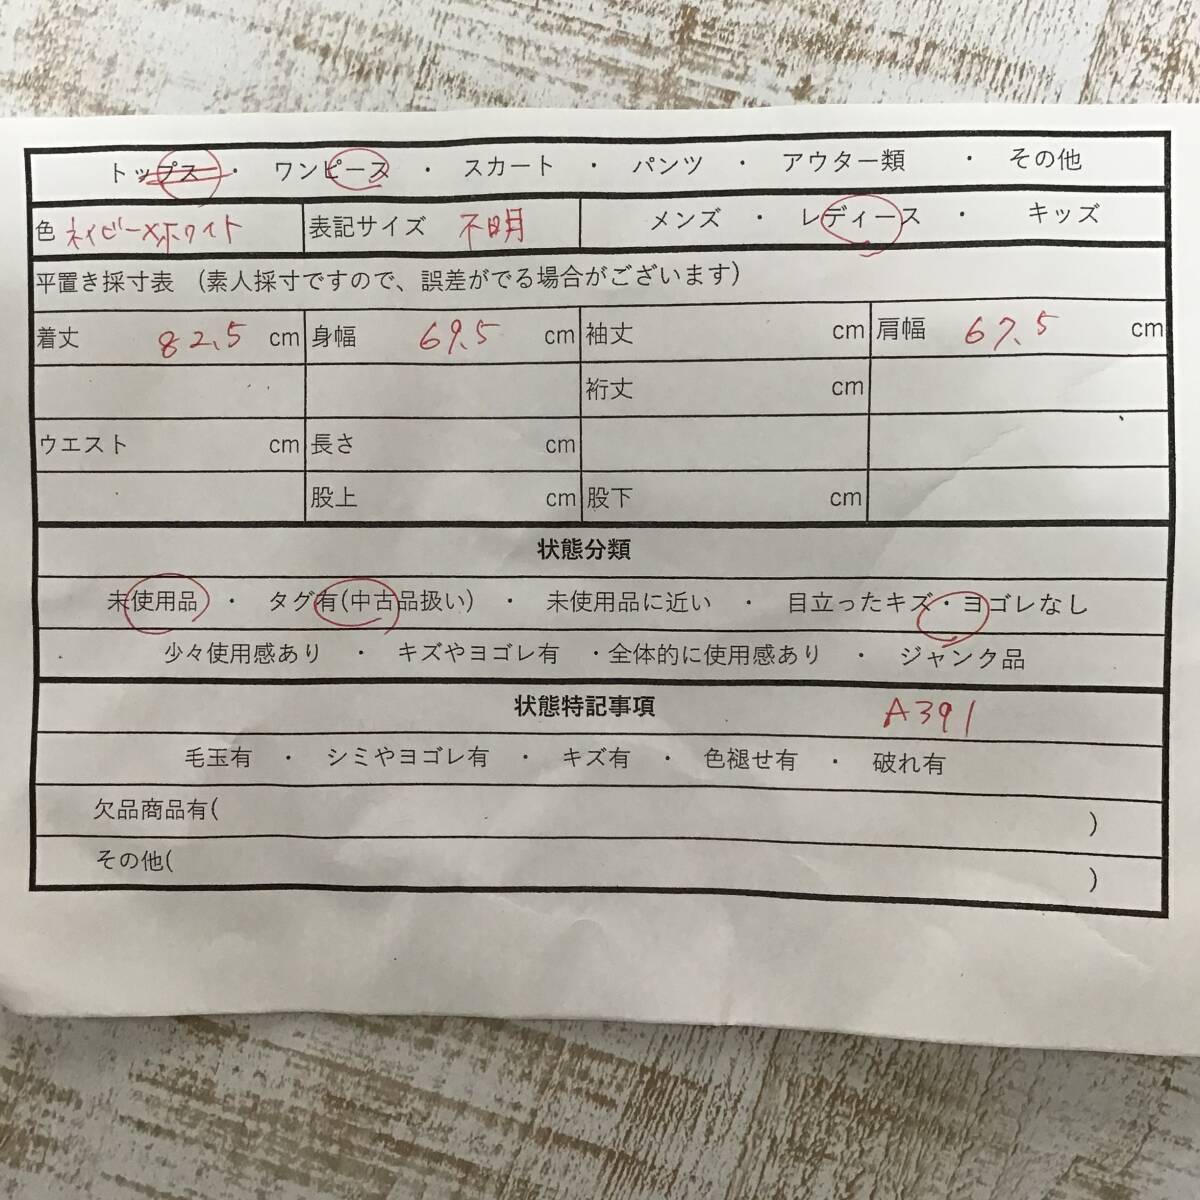 トップス ・ ワンピース ・ スカート ・ パンツ ・ アウター類 ・ その他
色 ネイビー×ホワイト 表記サイズ 不明 メンズ ・ レディース ・ キッズ
平置き採寸表 (素人採寸ですので、誤差がでる場合がございます)
着丈 82.5 cm 身幅 69.5 cm 袖丈 cm 肩幅 67.5 cm
裄丈 cm
ウエスト cm 長さ cm
股上 cm 股下 cm
状態分類
未使用品 ・ タグ有(中古品扱い) ・ 未使用品に近い ・ 目立ったキズ・ヨゴレなし
少々使用感あり ・ キズやヨゴレ有 ・全体的に使用感あり ・ ジャンク品
状態特記事項 A391
毛玉有 ・ シミやヨゴレ有 ・ キズ有 ・ 色褪せ有 ・ 破れ有
欠品商品有( )
その他( )